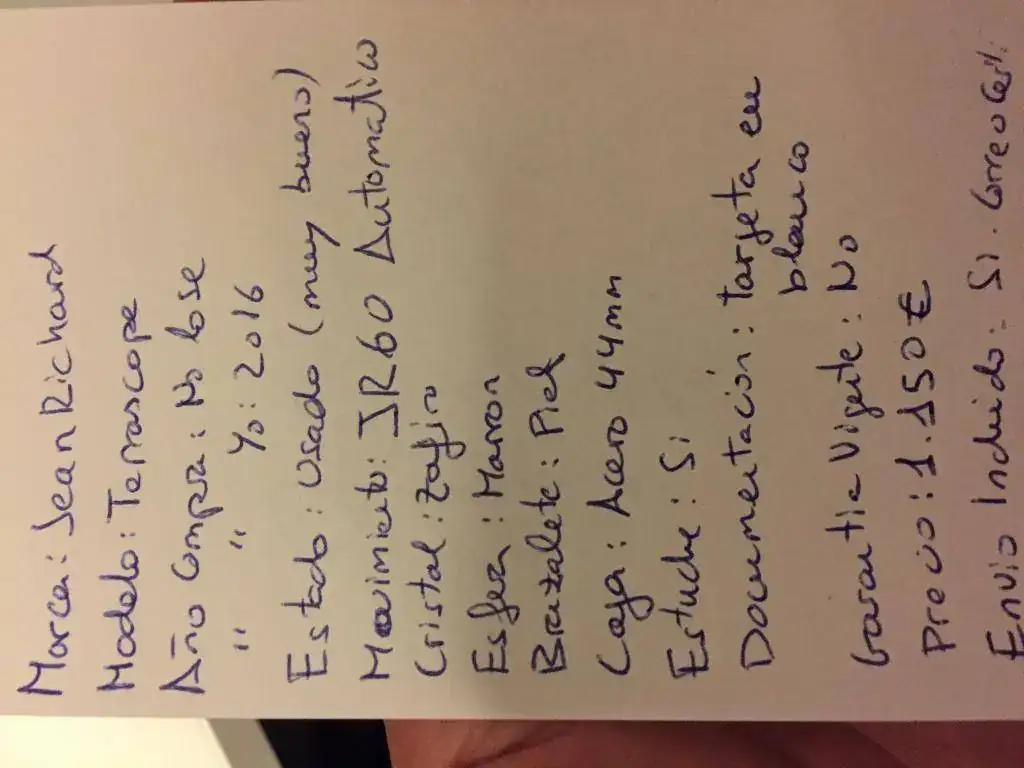 Marca: Jean Richard
Modelo: Terrascope
Año Compra: No lo se
" " Yo: 2016
Estado: Usado (muy bueno)
Movimiento: JR60 Automatico
Cristal: Zafiro
Esfera: Marron
Brazalete: Piel
Caja: Acero 44mm
Estuche: Si
Documentación: targeta en
blanco
Garantia Vigente: No
Precio: 1.150€
Envio Incluido: Si. Correo Cert.